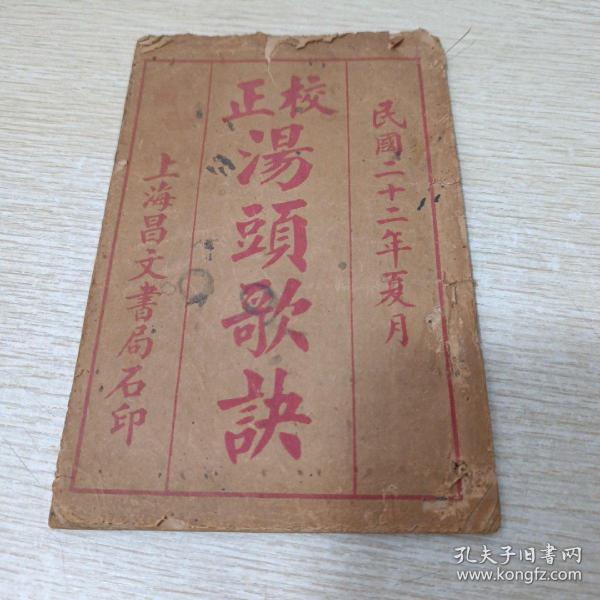 民國二十二年夏月
校正
湯頭歌訣
上海昌文書局石印
孔夫子旧書网
www.kongfz.com